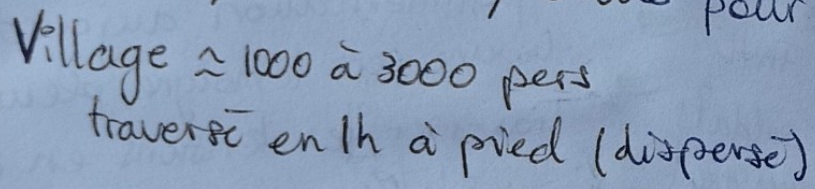 pour
Village ≈ 1000 à 3000 pers
traversé en 1h à pied (dispersé)